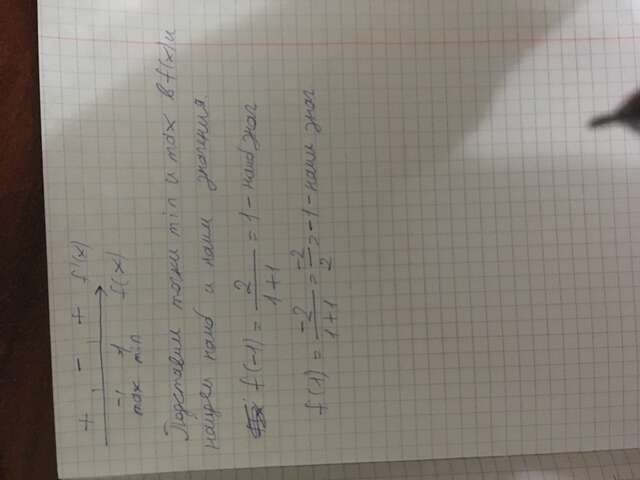 + - + f'(x)
-1 1 f(x)
max min
Подставим точки min и max в f(x) и
найдем наиб и наим значения.
f(-1) = 2/(1+1) = 1 - наиб знач
f(1) = -2/(1+1) = -2/2 = -1 - наим знач